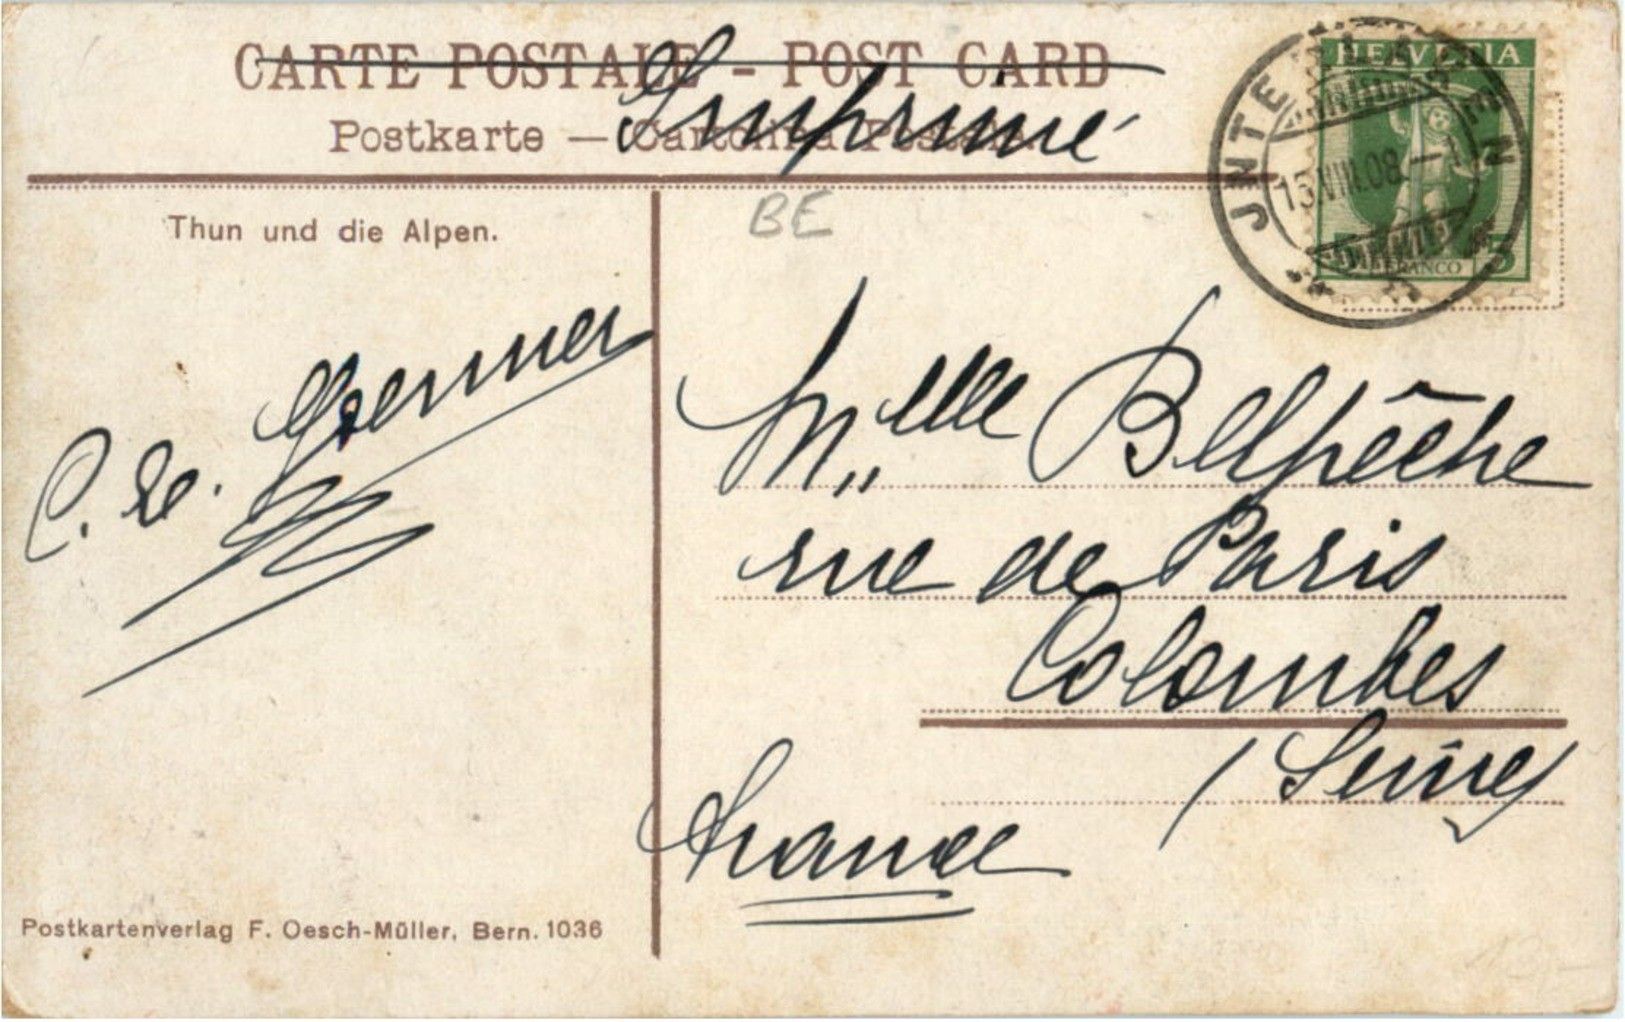 CARTE POSTALE - POST CARD
Imprimé
Postkarte — Cartolina Postale
HELVETIA
INTERLAKEN
13.VIII.08.—1
FRANCO 5
BE
Thun und die Alpen.
C. de
Mlle Belpêche
rue de Paris
Colombes
(Seine)
France
Postkartenverlag F. Oesch-Müller, Bern. 1036
13.-